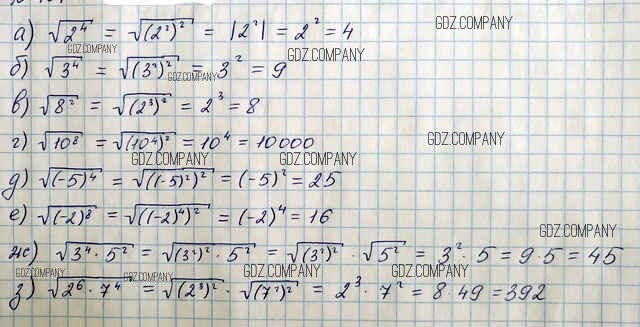 GDZ.COMPANY
а) √(2⁴) = √((2²)²) = |2²| = 2² = 4
GDZ.COMPANY GDZ.COMPANY
б) √(3⁴) = √((3²)²) = 3² = 9
GDZ.COMPANY
в) √(8²) = √((2³)²) = 2³ = 8
г) √(10⁸) = √((10⁴)²) = 10⁴ = 10000
GDZ.COMPANY
GDZ.COMPANY GDZ.COMPANY
д) √((-5)⁴) = √((-5)²)² = (-5)² = 25
е) √((-2)⁸) = √(((-2)⁴)²) = (-2)⁴ = 16
GDZ.COMPANY
ж) √(3⁴ · 5²) = √((3²)² · 5²) = √((3²)²) · √(5²) = 3² · 5 = 9 · 5 = 45
GDZ.COMPANY GDZ.COMPANY GDZ.COMPANY GDZ.COMPANY
з) √(2⁶ · 7⁴) = √((2³)²) · √((7²)²) = 2³ · 7² = 8 · 49 = 392